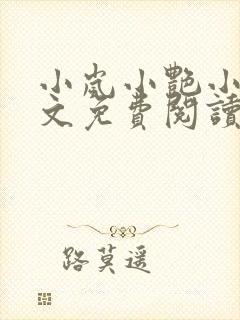 小岚小艷小
文免費閱讀
路莫遥